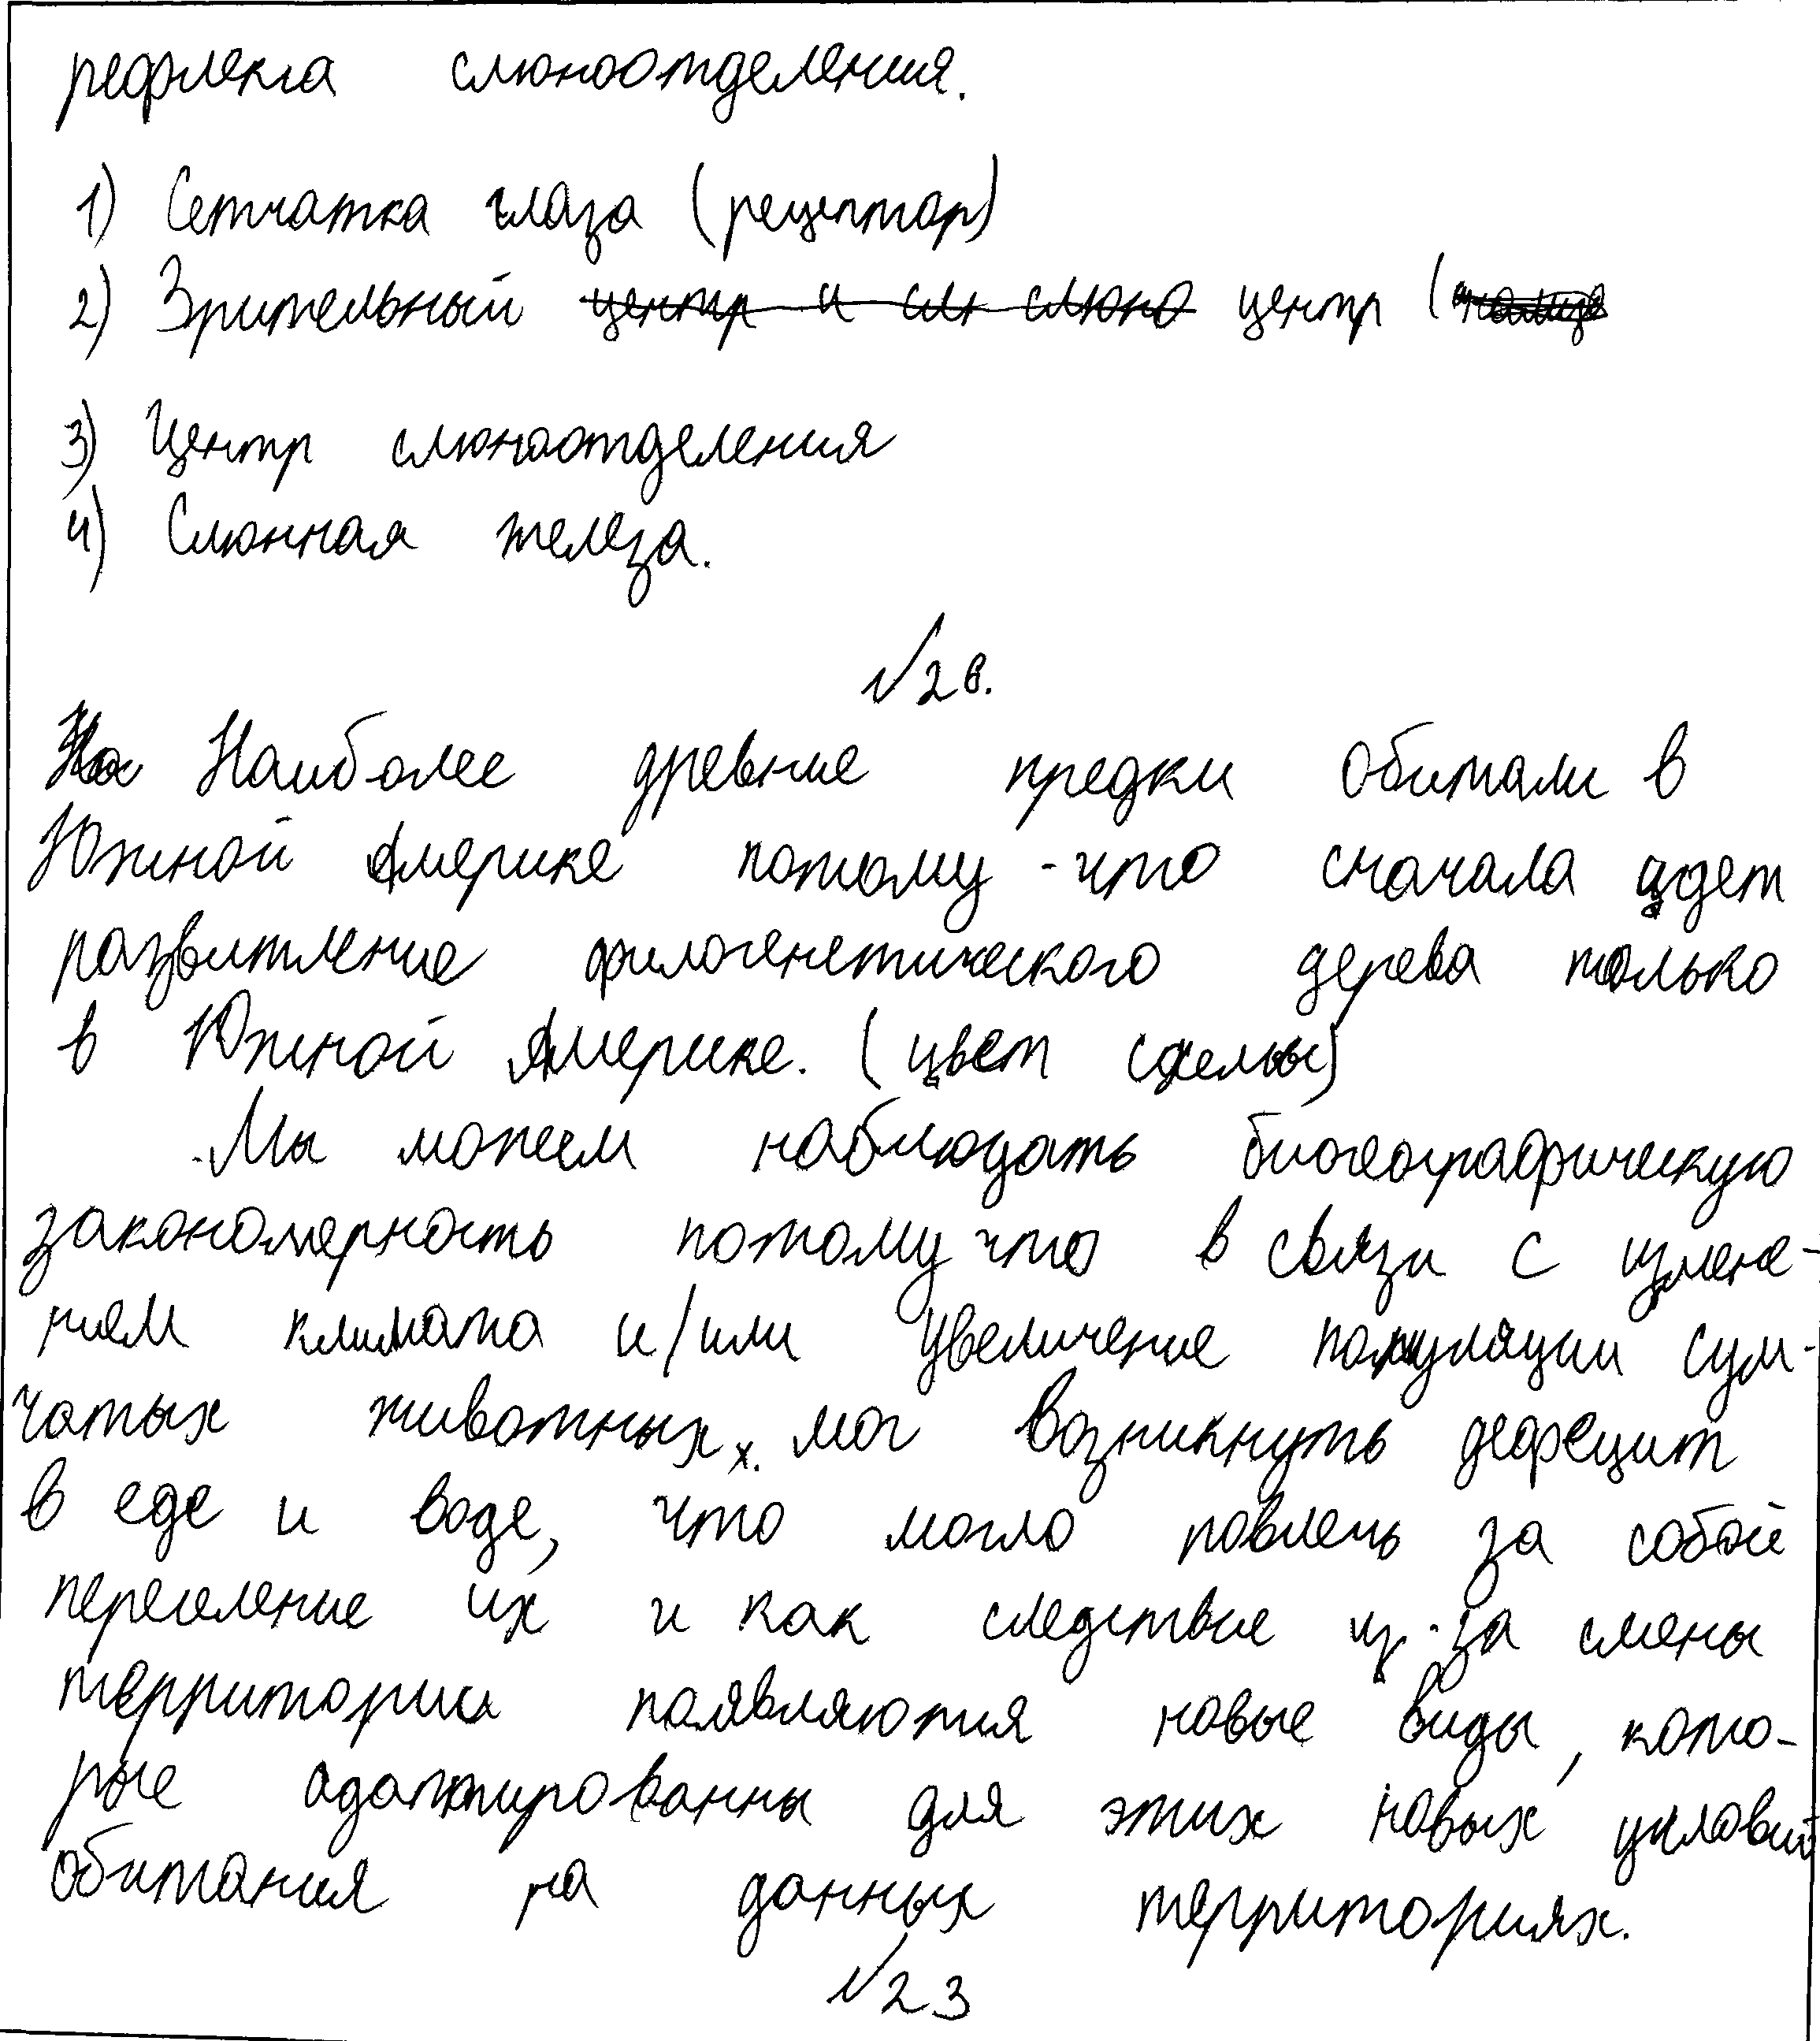 рефлекса слюноотделения.
1) Сетчатка глаза (рецептор)
2) Зрительный центр и сл слюно центр (
3) Центр слюноотделения
4) Слюнная железа.
№26.
На Наиболее древние предки обитали в
Южной Америке потому-что сначала идет
разветление филогенетического дерева только
в Южной Америке. (цвет схемы)
Мы можем наблюдать биогеографическую
закономерность потому что в связи с измене-
нием климата и/или увеличение популяции сум-
чатых животных мог возникнуть дефецит
в еде и воде, что могло повлечь за собой
переселение их и как следствие из-за смены
территории появляются новые виды, кото-
рые адаптированны для этих новых условий
обитания на данных территориях.
№23